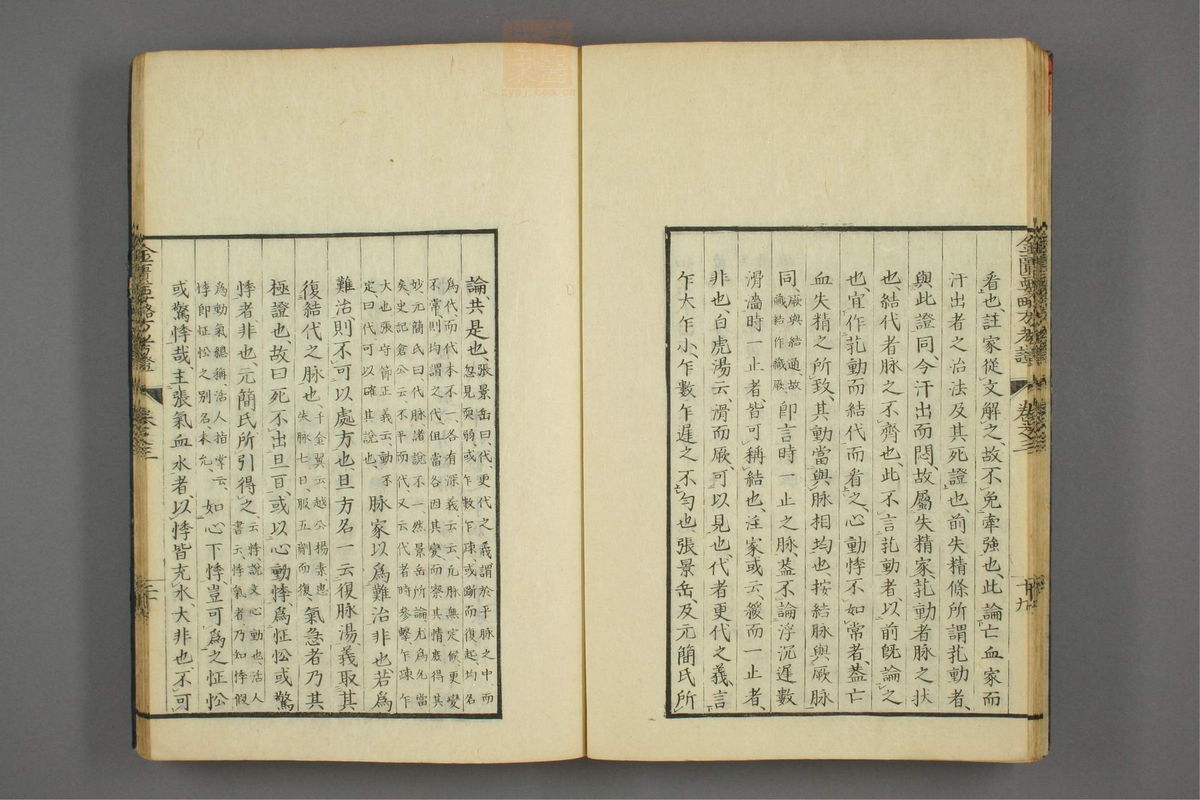 看也、註家從文解之、故不免牽強也、此論亡血家而
汗出者之治法及其死證也、前失精條所謂芤動者、
與此證同、今汗出而悶、故屬失精家芤動者脉之狀
也、結代者脉之不齊也、此不言芤動者、以前既論之
也、宜作芤動而結代而看之、心動悸不如常者、蓋亡
血失精之所致、其動當與脉相均也、按結脉與厥脉
同、厥與結通、故
藏結作藏厥
即言時一止之脉、蓋不論浮沉遲數
滑濇時一止者、皆可稱結也、注家或云、緩而一止者、
非也、白虎湯云、滑而厥、可以見也、代者更代之義、言
乍大乍小、乍數乍遲之不勻也、張景岳及元簡氏所
金匱要略方考證
卷之三
廿九
論、共是也、
張景岳曰、代、更代之義、謂於平脉之中、而
忽見耎弱、或乍數乍疎、或斷而復起、均名
為代、而代本不一、各有深義云云、凡脉無定候、更變
不常、則均謂之代、但當各因其變而察其情、庶得其
妙、元簡氏曰、代脉諸說不一、然景岳所論尤為允當
矣、史記倉公云、不平而代、又云、代者時參擊、乍疎乍
大也、張守節正義云、動不
定曰代、可以確其說也、
脉家以為難治非也、若為
難治、則不可以處方也、且方名一云復脉湯、義取其
復結代之脉也、
千金翼云、越公楊素患
失脉七日、服五劑而復、
氣急者乃其
極證也、故曰死不出旦可、或以心動悸為怔忪或驚
悸者非也、元簡氏所引得之、
云、悸說文心動也、活人
書云、悸氣者、乃知悸假
為動氣總稱、活人指掌云、
悸即怔忪之別名、未允、
如心下悸、豈可為之怔忪
或驚悸哉、主張氣血水者、以悸皆充水、大非也、不可
金匱要略方考證
卷之三